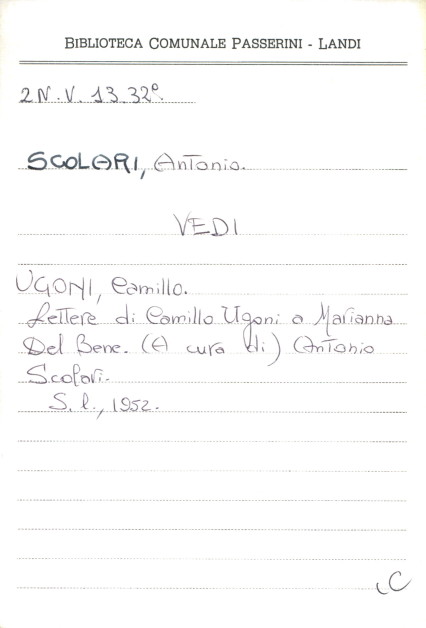 BIBLIOTECA COMUNALE PASSERINI - LANDI
2N.V.13.32°
SCOLARI, Antonio.
VEDI
UGONI, Camillo.
Lettere di Camillo Ugoni a Marianna
Del Bene. (A cura di) Antonio
Scolari.
S.l., 1952.